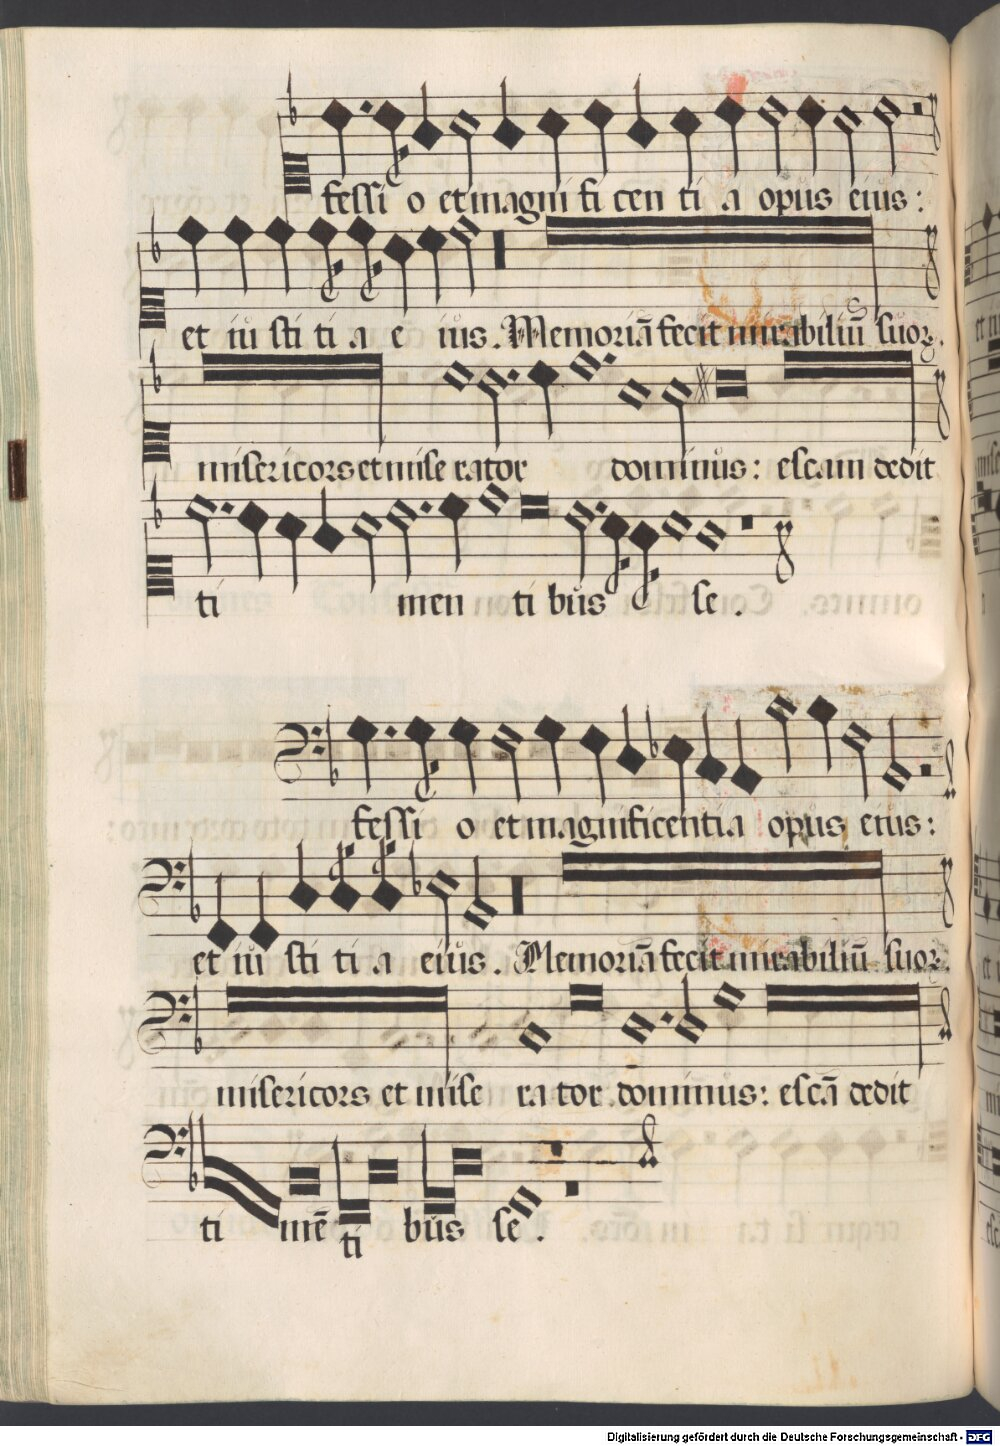 fessi o et magni fi cen ti a opus eius:
et iu sti ti a e ius. Memoriã fecit mirabiliũ suoꝝ.
misericors et mise rator dominus: escam dedit
ti men ti bus se.
fessi o et magnificentia opus eius:
et iu sti ti a eius. Memoriã fecit mirabiliũ suoꝝ.
misericors et mise ra tor dominus: escã dedit
ti mẽ ti bus se.
Digitalisierung gefördert durch die Deutsche Forschungsgemeinschaft - DFG